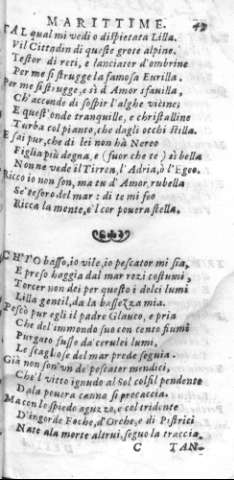 MARITTIME. 49
TAL qual mi vedi o dispietata Lilla.
Vil Cittadin di queste grote alpine.
Testor di reti, e lanciator d'ombrine
Per me si strugge la famosa Eurilla.
Per me si strugge, e sì d'Amor sfauilla,
Ch'accende di sospir l'alghe vicine;
E quest'onde tranquille, e christalline
Turba col pianto, che dagli occhi stilla.
E sai pur, che di lei non hà Nereo
Figlia più degna, e (fuor che te) sì bella
Nonne vede il Tirren, l'Adria, ò l'Egeo.
Ricco io non son, ma tu d'Amor rubella
Se'tesoro del mar: di te mi feo
Ricca la mente, e'l cor pouera stella.
CH'IO basso, io vile, io pescator mi sia,
E preso haggia dal mar rozi costumi,
Torcer non dei per questo i dolci lumi
Lilla gentil, da la bassezza mia.
Pescò pur egli il padre Glauco, e pria
Che del immondo suo con cento fiumi
Purgato fusse da'cerulei lumi,
Le scagliose del mar prede seguia.
Già non son'vn de'pescator mendici,
Che'l vitto ignudo al Sol col fil pendente
Da la pouera canna si procaccia.
Ma con lo spiedo aguzzo, e col tridente
D'ingorde Foche, d'Orche, e di Pistrici
Nate a la morte altrui, seguo la traccia.
C TAN-